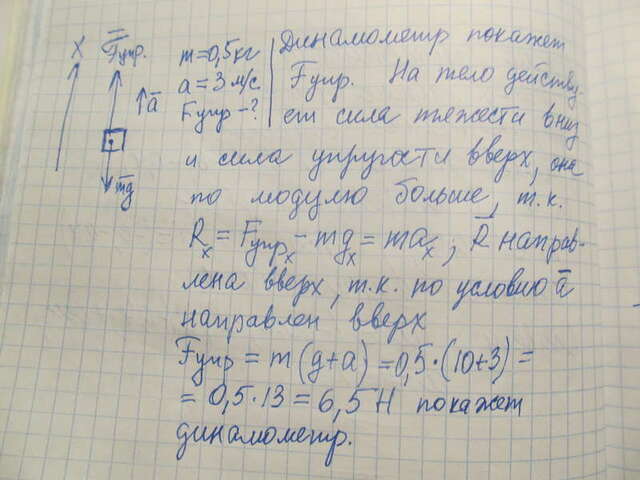 X F̄упр. m=0,5кг Динамометр покажет
ā a=3 м/с Fупр. На тело действу-
Fупр-? ет сила тяжести вниз
и сила упругости вверх, она
m̄g по модулю больше, т.к.
Rₓ = Fупрₓ - mgₓ = maₓ, R̄ направ-
лена вверх, т.к. по условию ā
направлен вверх
Fупр = m(g+a) = 0,5·(10+3) =
= 0,5·13 = 6,5Н покажет
динамометр.